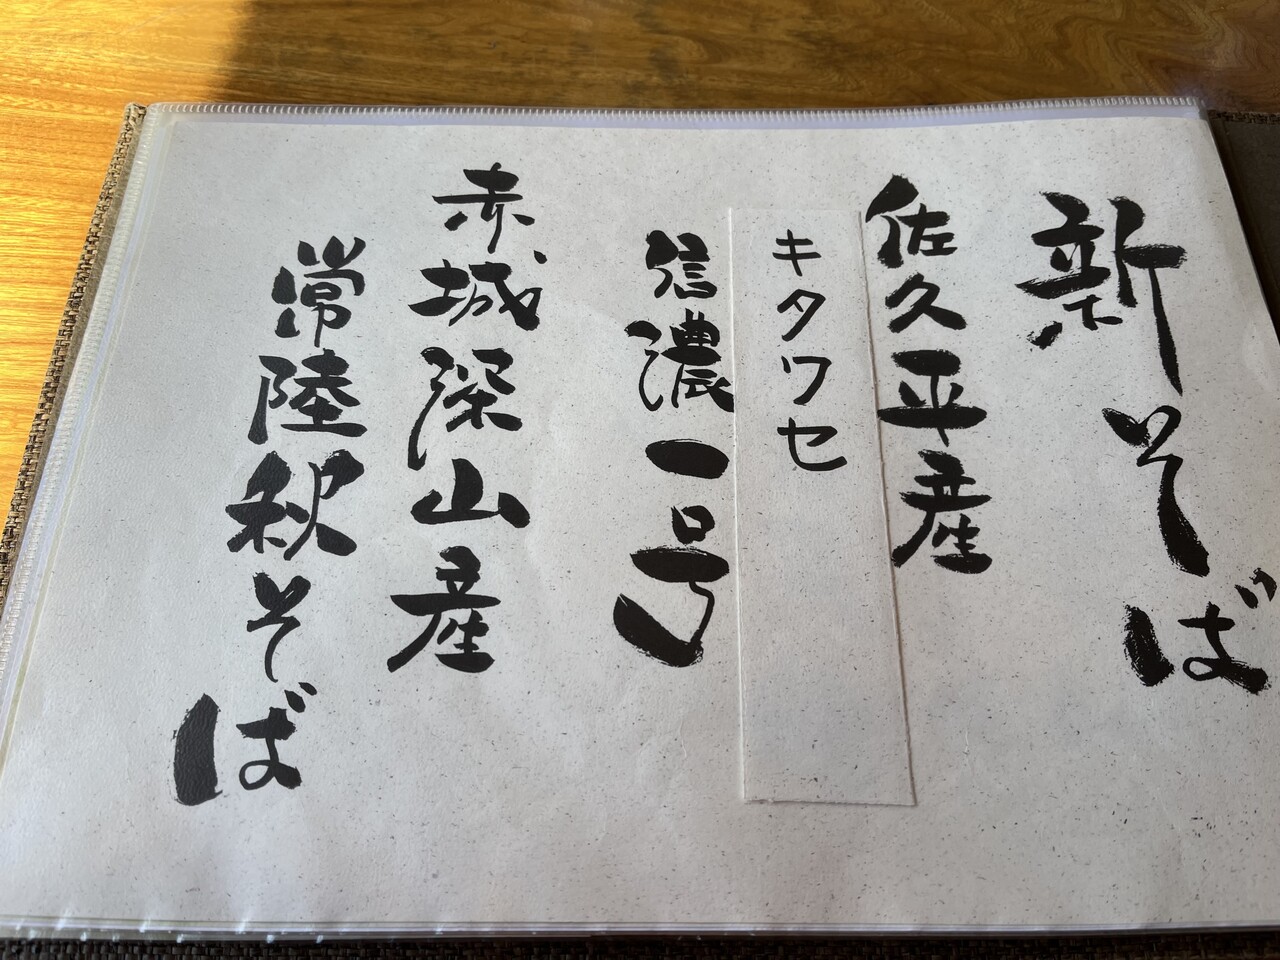 新そば
佐久平産
キタワセ
信濃一号
赤城深山産
常陸秋そば